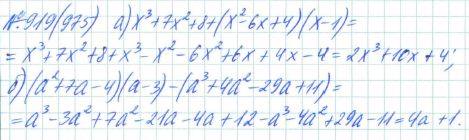 № 919(975) а) x³+7x²+8+(x²-6x+4)(x-1)=
= x³+7x²+8+x³-x²-6x²+6x+4x-4=2x³+10x+4;
б)(a²+7a-4)(a-3)-(a³+4a²-29a+11)=
=a³-3a²+7a²-21a-4a+12-a³-4a²+29a-11=4a+1.